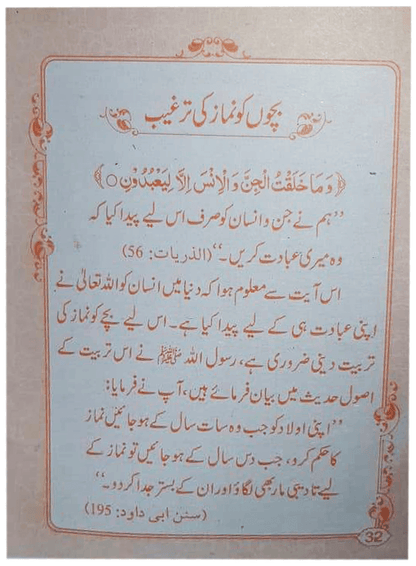 بچوں کو نماز کی ترغیب
﴿وَمَا خَلَقْتُ الْجِنَّ وَالْاِنْسَ اِلَّا لِيَعْبُدُوْنِ ○﴾
”ہم نے جن و انسان کو صرف اس لیے پیدا کیا کہ
وہ میری عبادت کریں۔“ (الذریات: 56)
اس آیت سے معلوم ہوا کہ دنیا میں انسان کو اللہ تعالیٰ نے
اپنی عبادت ہی کے لیے پیدا کیا ہے۔ اس لیے بچے کو نماز کی
تربیت دینی ضروری ہے، رسول اللہ ﷺ نے اس تربیت کے
اصول حدیث میں بیان فرمائے ہیں، آپ نے فرمایا:
”اپنی اولاد کو جب وہ سات سال کے ہو جائیں نماز
کا حکم کرو، جب دس سال کے ہو جائیں تو نماز کے
لیے تادیبی مار بھی لگاؤ اور ان کے بستر جدا کر دو۔“
(سنن ابی داود: 195)
32